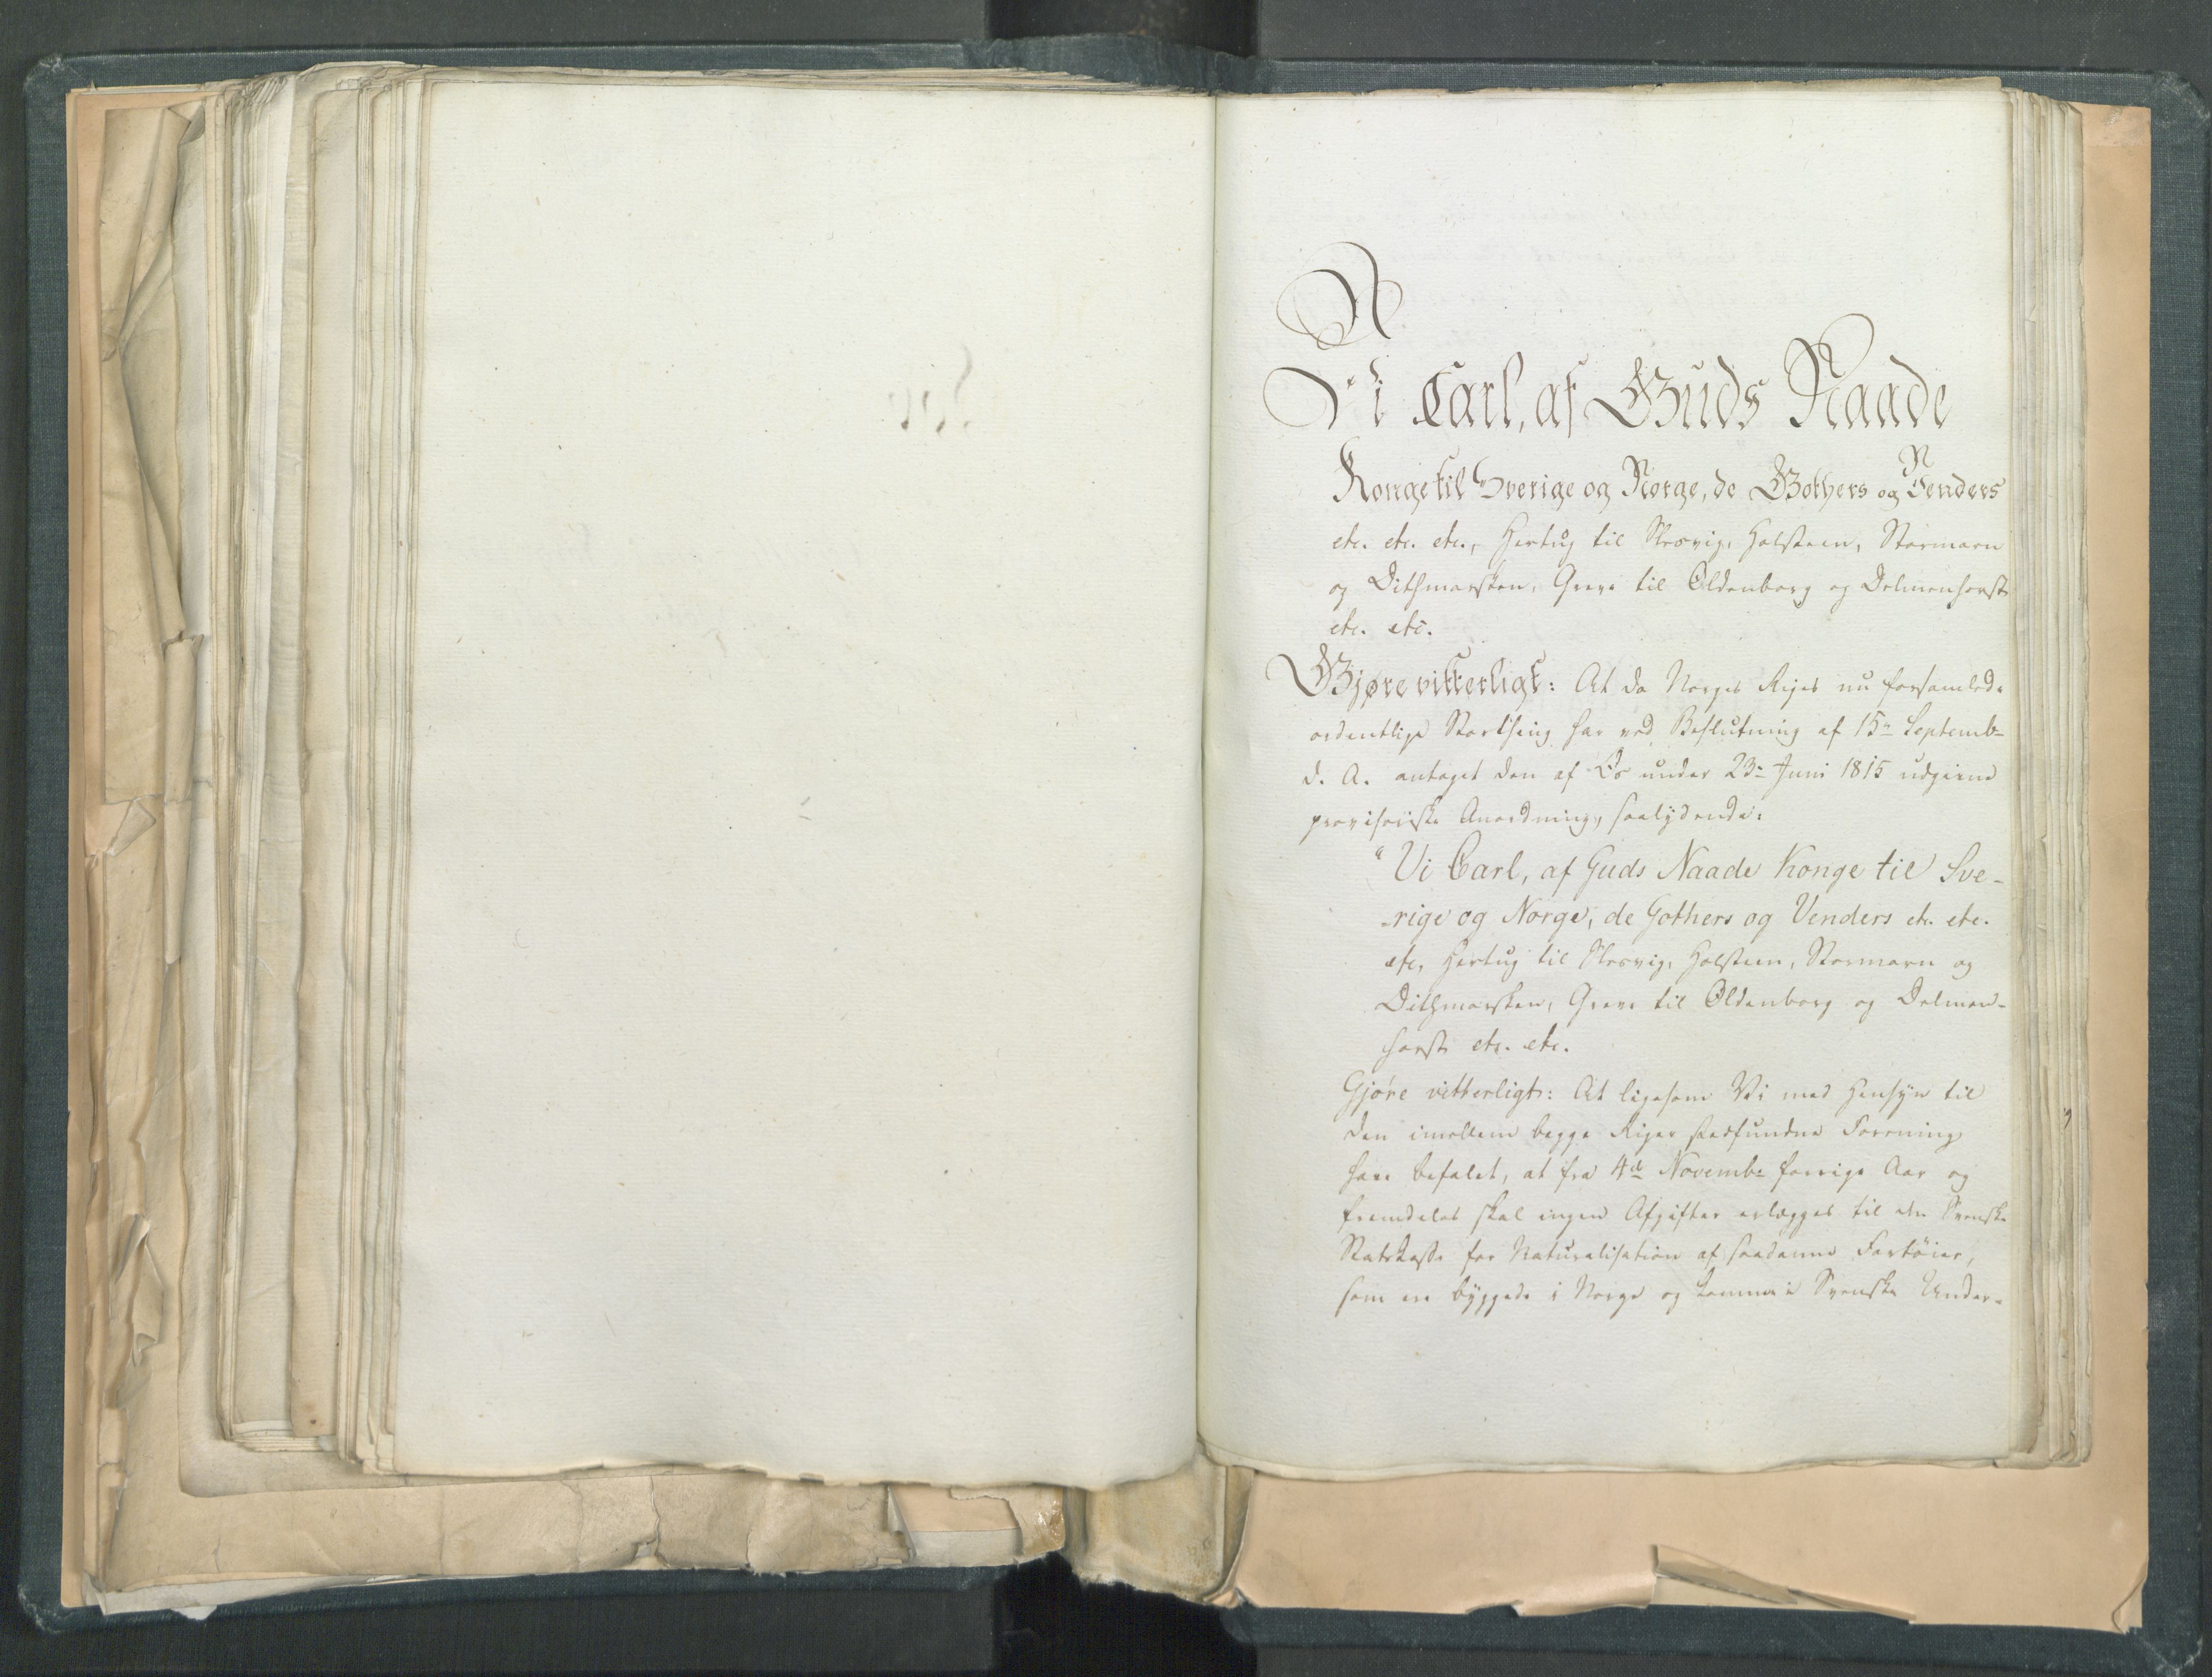 Vi Carl, af Guds Naade
Konge til Sverige og Norge, de Gothers og Venders
etc. etc. etc., Hertug til Slesvig, Holsteen, Stormarn
og Dithmarsken, Greve til Oldenborg og Delmenhorst
etc. etc.
Gjøre vitterligt: At da Norges Riges nu forsamlede
ordentlige Storthing har ved Beslutning af 15de Septemb
d. A. antaget den af Os under 23de Juni 1815 udgivne
provisoriske Anordning, saalydende:
"Vi Carl, af Guds Naade Konge til Sve-
-rige og Norge, de Gothers og Venders etc. etc.
etc, Hertug til Slesvig, Holsteen, Stormarn og
Dithmarsken, Greve til Oldenborg og Delmen-
horst etc. etc.
Gjøre vitterligt: At ligesom Vi med Hensyn til
den imellem begge Riger stedfundne Forening
have befalet, at fra 4de Novembr forrige Aar og
fremdeles skal ingen Afgifter erlægges til den Svenske
Statskasse for Naturalisation af saadanne Fartöier,
som ere byggede i Norge og komme i Svenske Under-